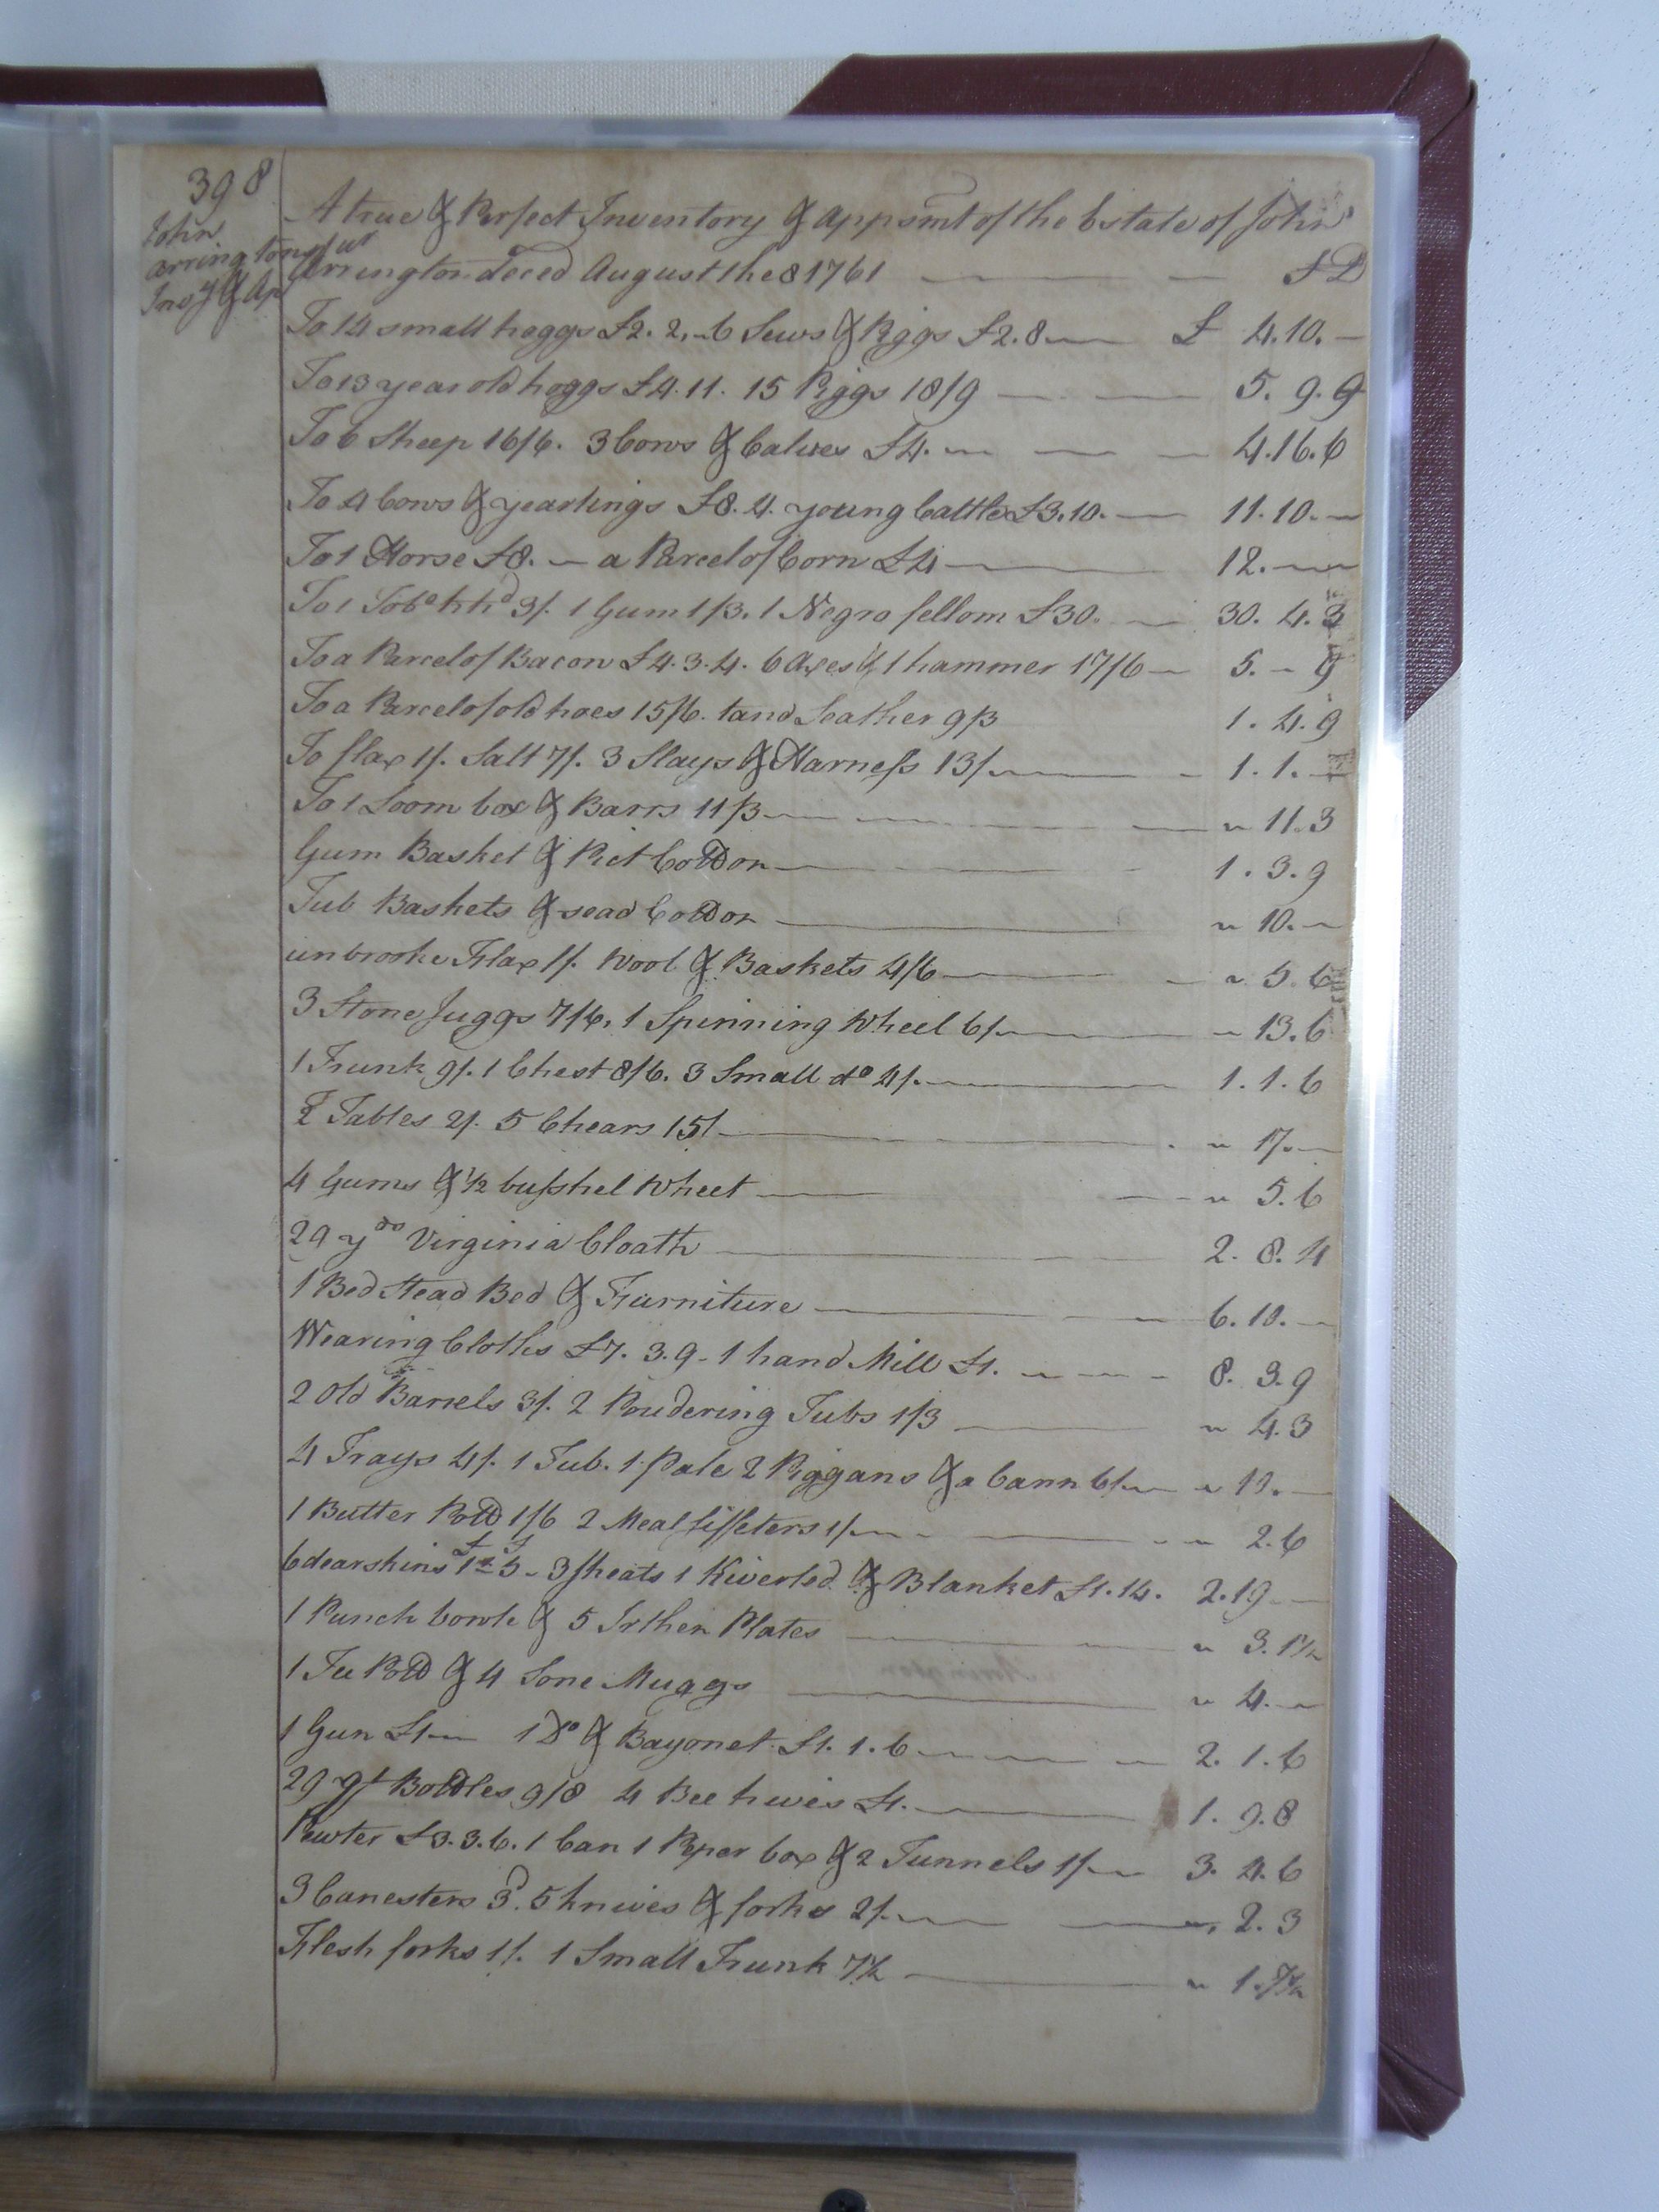 398
John
Arringtons
Invy & Ap
A true & Perfect Inventory & Appsmt of the Estate of John
Arrington deced August the 8 1761
To 14 small hoggs £2. 2. - 6 Sews & Piggs £2.8 £ 4.10. -
To 13 year old hoggs £4.11. 15 Piggs 18/9 5. 9. 9
To 6 Sheep 16/6. 3 Cows & Calves £4. 4.16.6
To 4 Cows & yearlings £8. 4. young Cattle £3.10. 11.10. -
To 1 Horse £8. - a Parcel of Corn £4 12. -
To 1 Tobo hhd 3/. 1 Gum 1/3. 1 Negro fellom £30. 30. 4. 3
To a Parcel of Bacon £4.3.4. 6 Axes & 1 hammer 17/6 5. - 9
To a Parcel of old hoes 15/6. tand Leather 9/3 1. 4. 9
To flax 1/. Salt 7/. 3 Slays & Harness 13/. 1. 1. -
To 1 Loom box & Barrs 11/3 " 11. 3
Gum Basket & Pict Cotton 1. 3. 9
Tub Baskets & sead Cotton " 10. -
unbrooke Flax 1/. Wool & Baskets 4/6 " 5. 6
3 Stone Juggs 7/6. 1 Spinning Wheel 6/. " 13. 6
1 Trunk 9/. 1 Chest 8/6. 3 Small do 4/. 1. 1. 6
2 Tables 2/. 5 Chears 15/ " 17. -
4 Gums & 1/2 busshel Wheet " 5. 6
29 yds Virginia Cloath 2. 8. 4
1 Bed Stead Bed & Furniture 6. 10. -
Wearing Cloths £7. 3. 9 - 1 hand Mill £1. 8. 3. 9
2 Old Barrels 3/. 2 Poudering Tubs 1/3 " 4. 3
4 Trays 4/. 1 Tub. 1 Pale 2 Piggans & a Cann 6/. " 10. -
1 Butter Pott 1/6 2 Meal sifseters 1/. " 2. 6
6 dearskins £1 " 5 - 3 sheats 1 Kiverled & Blanket £1. 14. 2. 19 -
1 Punch bowle & 5 Irthen Plates " 3. 1 1/2
1 Tee Pott & 4 Sone Muggs " 4. -
1 Gun £1. 1 Do & Bayonet £1. 1. 6 2. 1. 6
29 qt Bottles 9/8 4 Bee hives £1. 1. 9. 8
Pewter £3. 3. 6. 1 Can 1 Peper box & 2 Tunnels 1/. 3. 4. 6
3 Canesters 3d. 5 knives & forks 2/. " 2. 3
Flesh forks 1/. 1 Small Trunk 7 1/2 " 1. 7 1/2